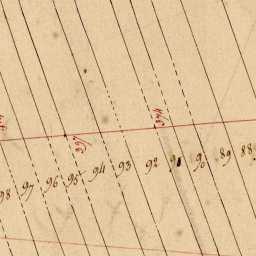 98 97 96 95 94 93 92 91 90 89 88